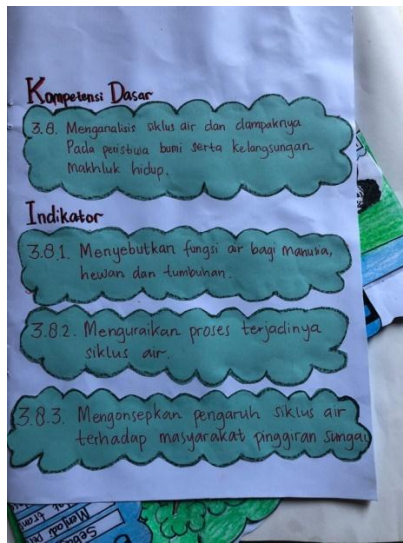 Kompetensi Dasar
3.8. Menganalisis siklus air dan dampaknya
Pada peristiwa bumi serta kelangsungan
makhluk hidup.
Indikator
3.8.1. Menyebutkan fungsi air bagi manusia,
hewan dan tumbuhan.
3.8.2. Menguraikan proses terjadinya
siklus air.
3.8.3. Mengonsepkan pengaruh siklus air
terhadap masyarakat pinggiran sungai
Menjadi